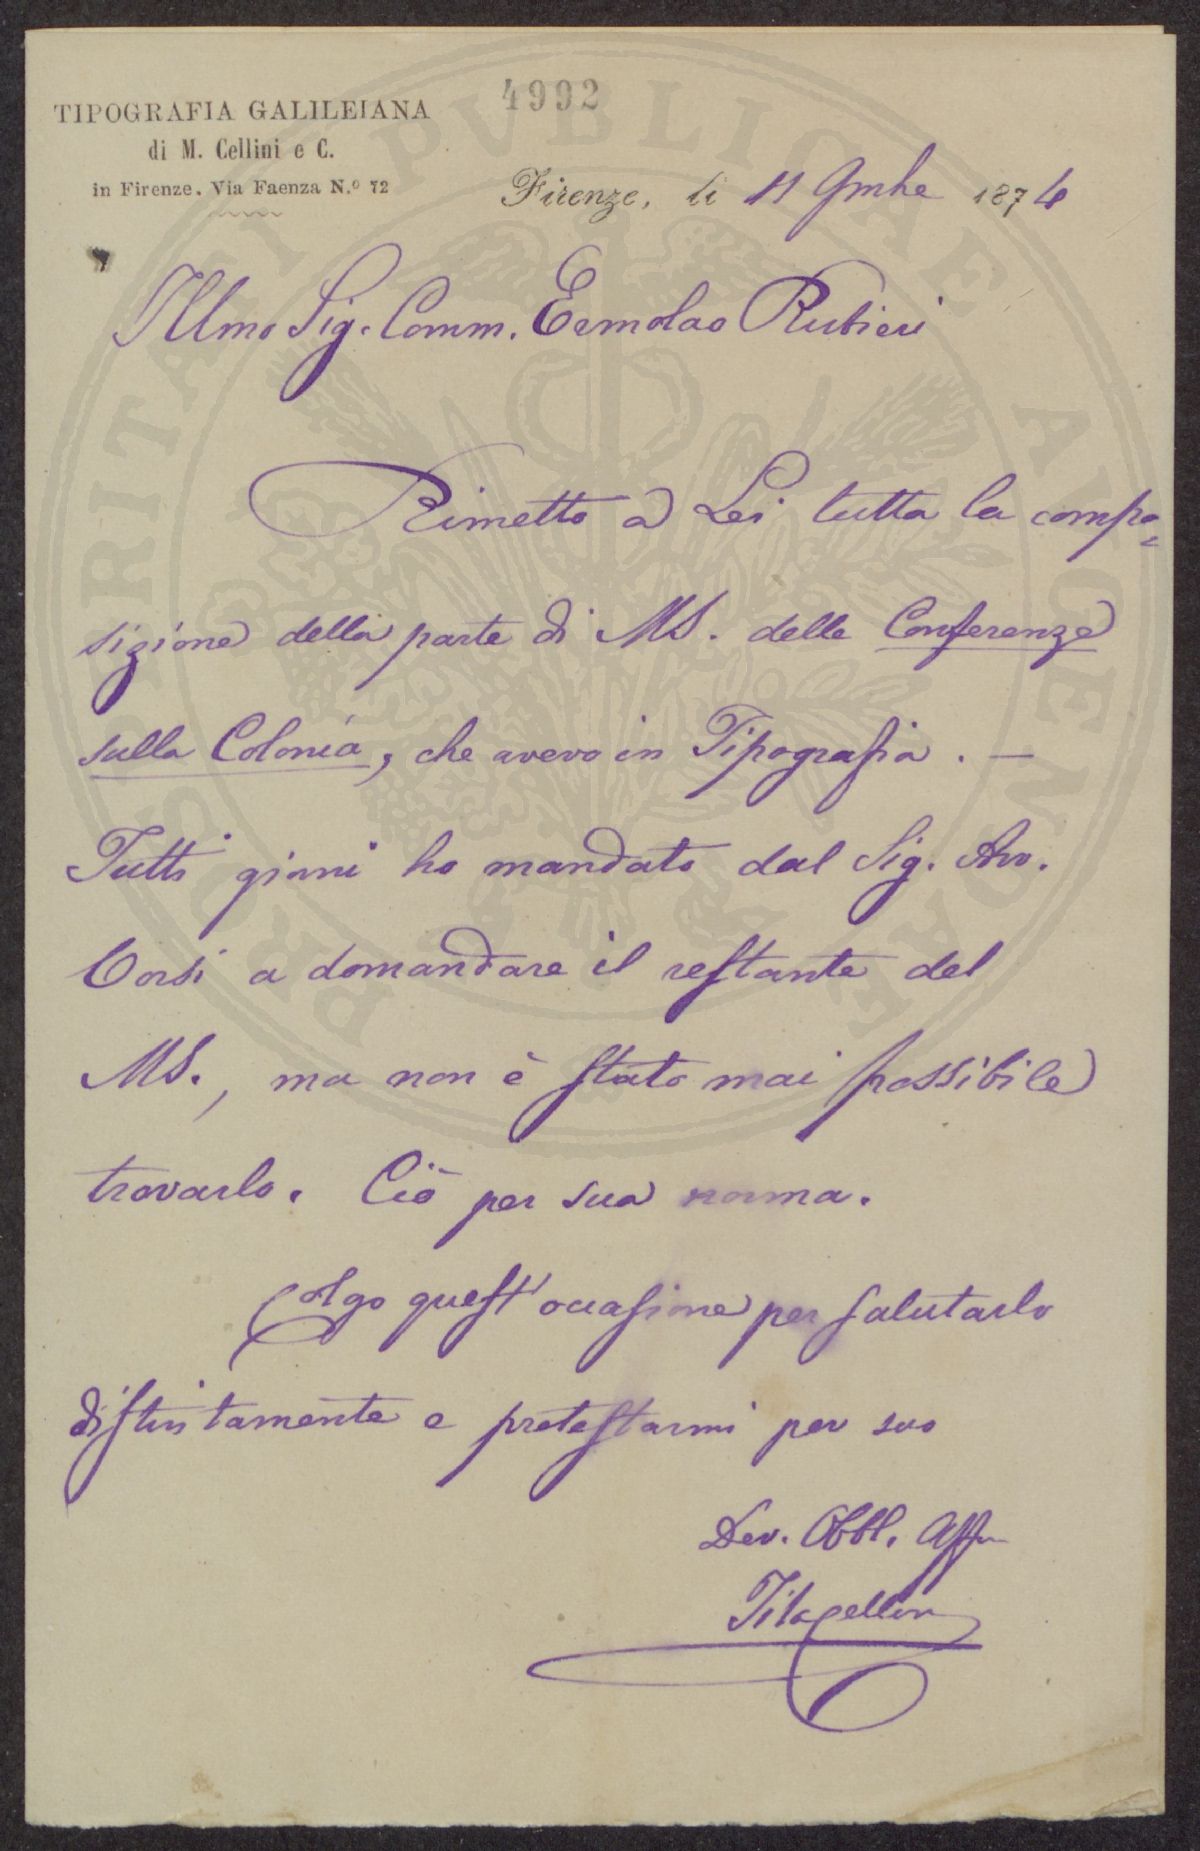 4992
TIPOGRAFIA GALILEIANA
di M. Cellini e C.
in Firenze. Via Faenza N.º 72
Firenze, li 11 9mbe 1874
Illmo Sig. Comm. Ermolao Rubieri
Rimetto a Lei tutta la compo=
sizione della parte di MS. delle Conferenze
sulla Colonia, che avevo in Tipografia. —
Tutti giorni ho mandato dal Sig. Avv.
Corsi a domandare il restante del
MS., ma non è stato mai possibile
trovarlo. Ciò per sua norma.
Colgo quest'occasione per salutarlo
distintamente e protestarmi per suo
Dev. Obbl. Aff
PROSPERITATI PVBLICAE AVGENDAE